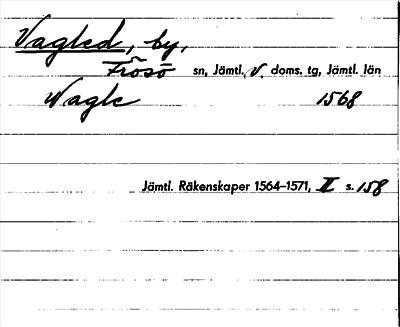 Vagled, by,
Frösö sn, Jämtl. V. doms. tg, Jämtl. län
Wagle 1568
Jämtl. Räkenskaper 1564–1571, II s. 158